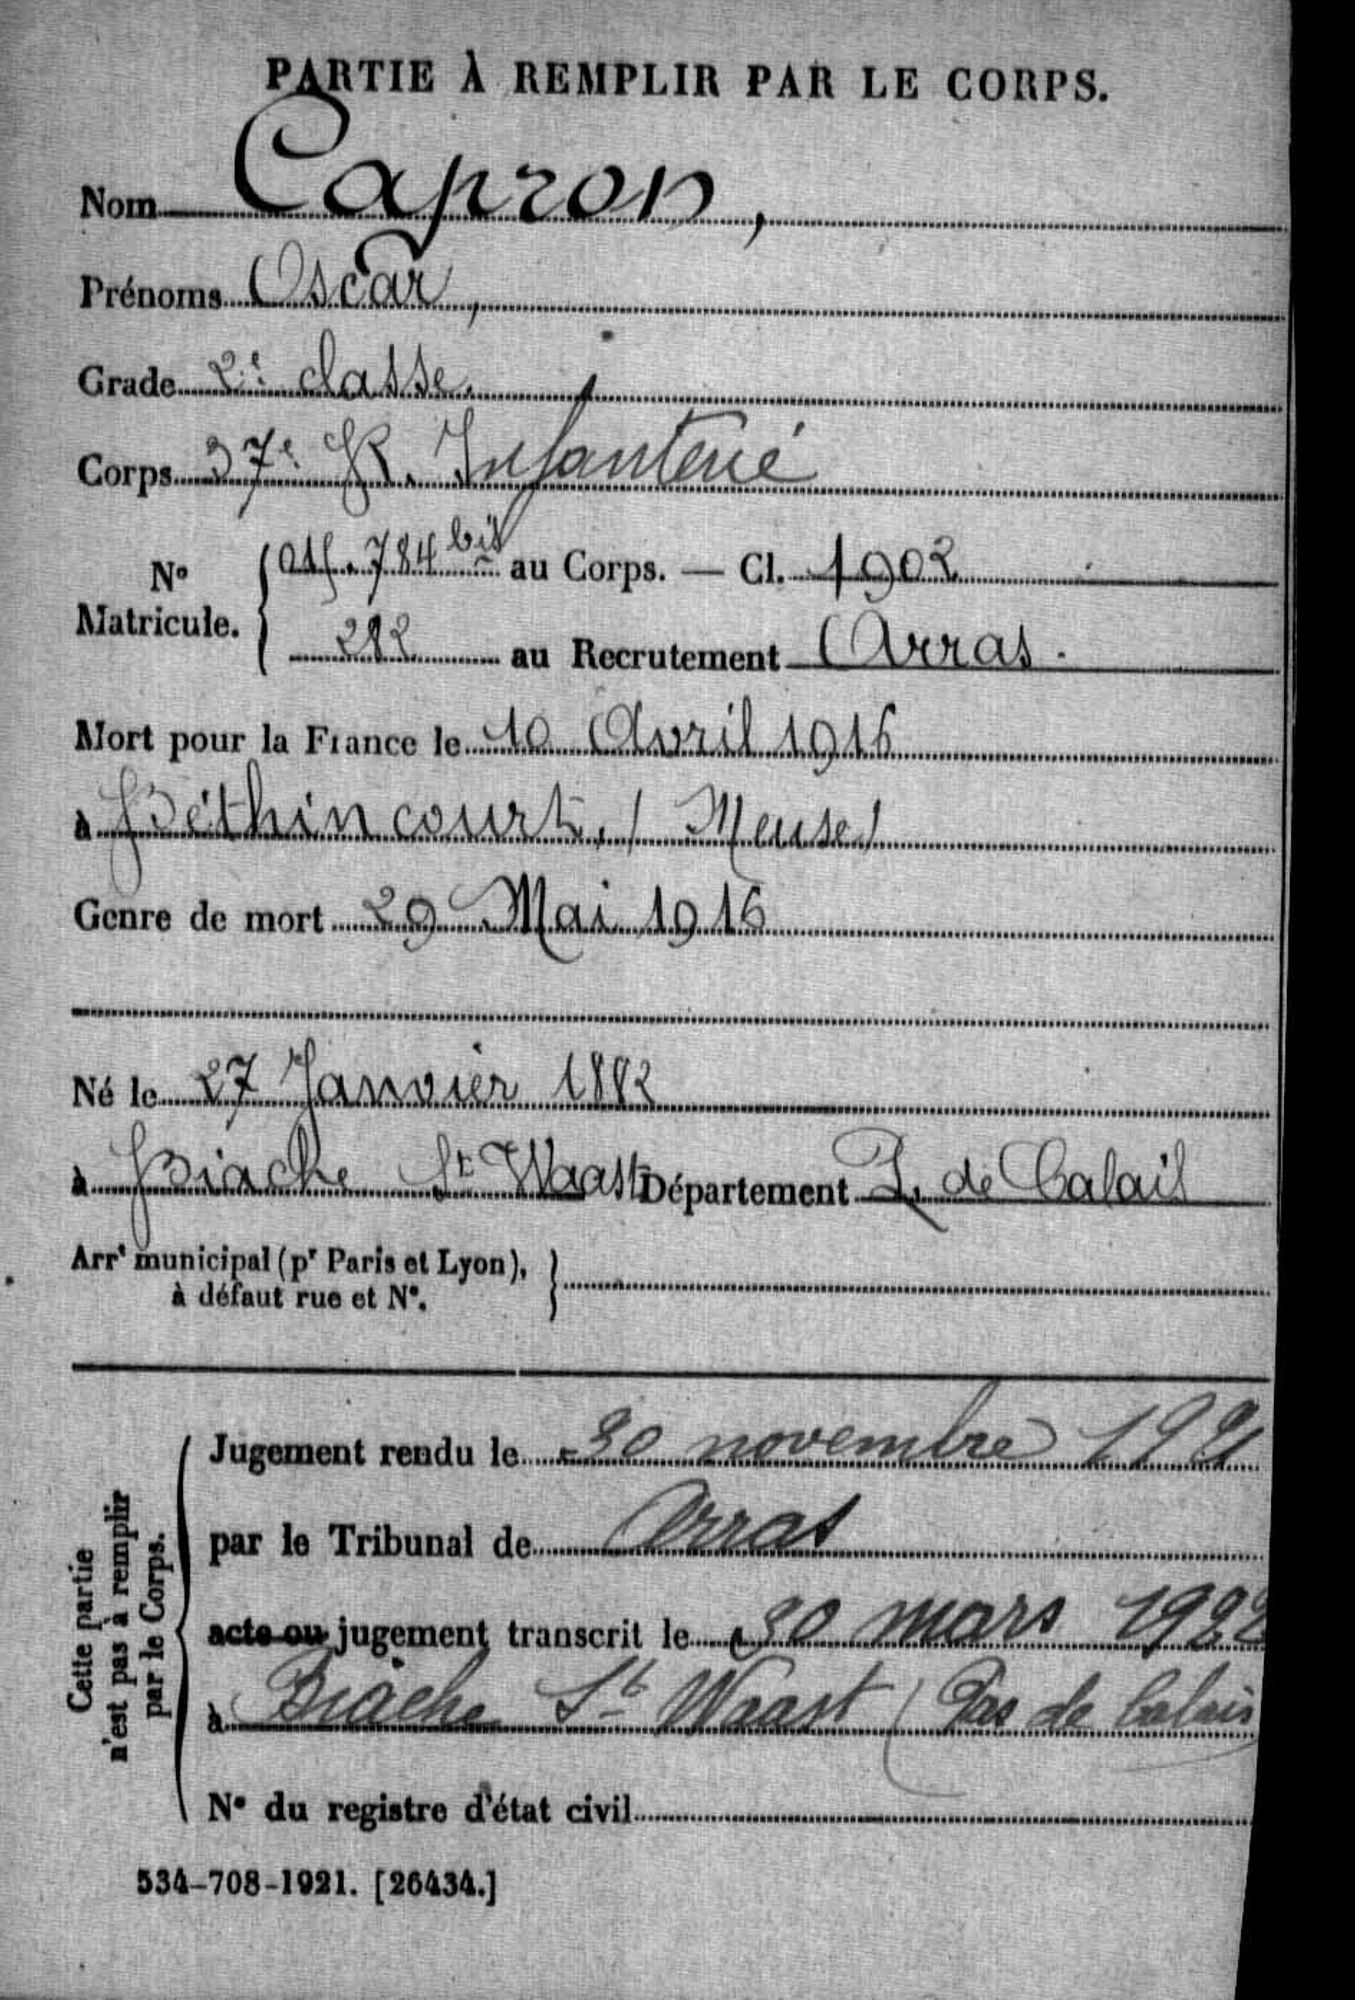 PARTIE À REMPLIR PAR LE CORPS.
Nom Capron,
Prénoms Oscar,
Grade 2e classe.
Corps 37e R. Infanterie
No Matricule. 784 bis au Corps. — Cl. 1902
282 au Recrutement Arras.
Mort pour la France le 10 Avril 1916
à Béthincourt, (Meuse)
Genre de mort 29 Mai 1916
Né le 27 Janvier 1882
à Biache St Waast Département P. de Calais
Arrt municipal (pr Paris et Lyon),
à défaut rue et No.
Cette partie
n'est pas à remplir
par le Corps.
Jugement rendu le 30 novembre 1921
par le Tribunal de Arras
acte ou jugement transcrit le 30 mars 1922
à Biache St Waast (Pas de Calais
No du registre d'état civil
534-708-1921. [26434.]